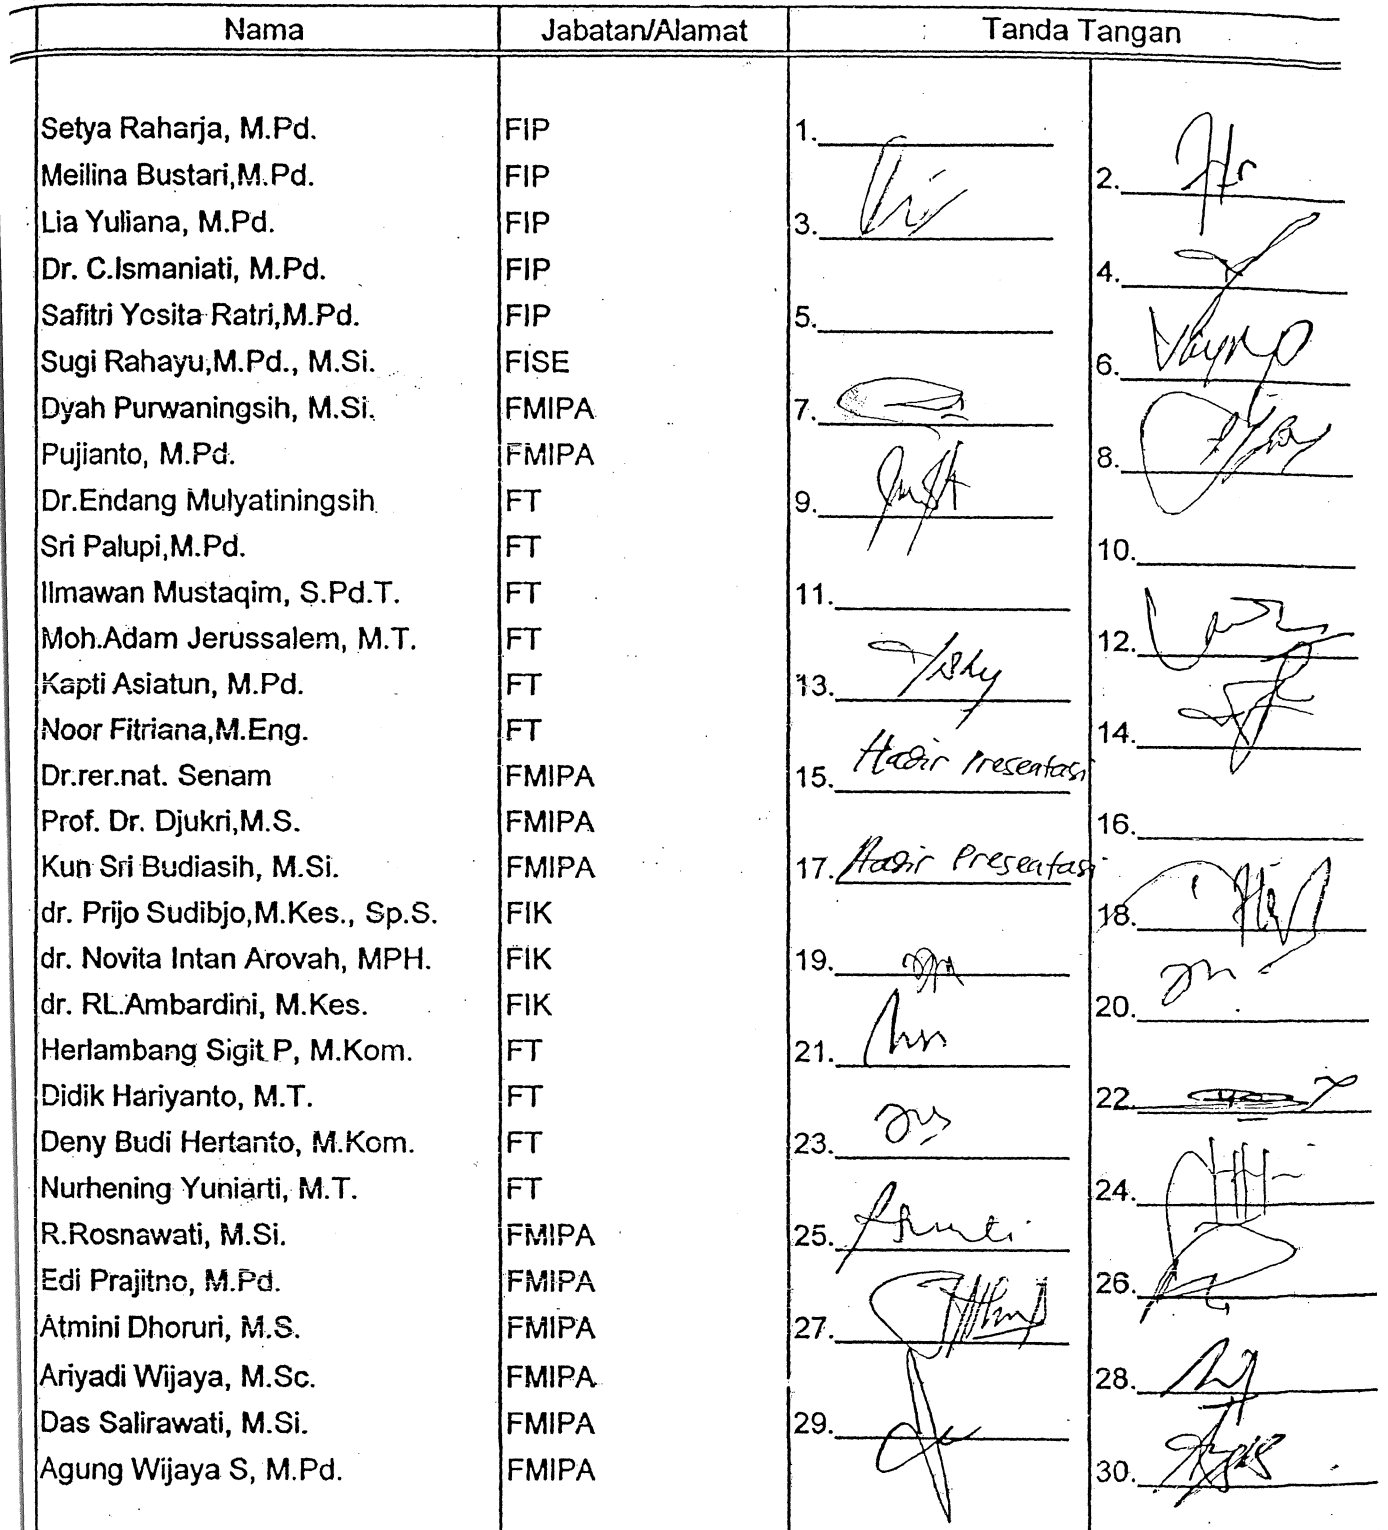 Nama Jabatan/Alamat Tanda Tangan
Setya Raharja, M.Pd. FIP 1.
Meilina Bustari,M.Pd. FIP 2.
Lia Yuliana, M.Pd. FIP 3.
Dr. C.Ismaniati, M.Pd. FIP 4.
Safitri Yosita Ratri,M.Pd. FIP 5.
Sugi Rahayu,M.Pd., M.Si. FISE 6.
Dyah Purwaningsih, M.Si. FMIPA 7.
Pujianto, M.Pd. FMIPA 8.
Dr.Endang Mulyatiningsih FT 9.
Sri Palupi,M.Pd. FT 10.
Ilmawan Mustaqim, S.Pd.T. FT 11.
Moh.Adam Jerussalem, M.T. FT 12.
Kapti Asiatun, M.Pd. FT 13.
Noor Fitriana,M.Eng. FT 14.
Dr.rer.nat. Senam FMIPA 15. Hadir Presentasi
Prof. Dr. Djukri,M.S. FMIPA 16.
Kun Sri Budiasih, M.Si. FMIPA 17. Hadir Presentasi
dr. Prijo Sudibjo,M.Kes., Sp.S. FIK 18.
dr. Novita Intan Arovah, MPH. FIK 19.
dr. RL.Ambardini, M.Kes. FIK 20.
Herlambang Sigit P, M.Kom. FT 21.
Didik Hariyanto, M.T. FT 22.
Deny Budi Hertanto, M.Kom. FT 23.
Nurhening Yuniarti, M.T. FT 24.
R.Rosnawati, M.Si. FMIPA 25.
Edi Prajitno, M.Pd. FMIPA 26.
Atmini Dhoruri, M.S. FMIPA 27.
Ariyadi Wijaya, M.Sc. FMIPA 28.
Das Salirawati, M.Si. FMIPA 29.
Agung Wijaya S, M.Pd. FMIPA 30.